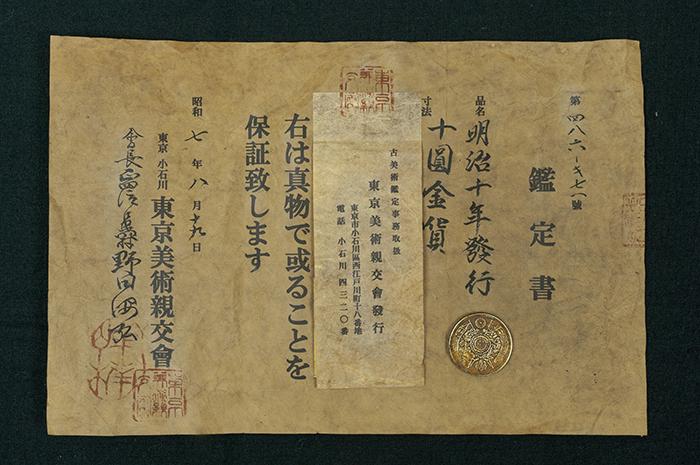 第四八六一号七一號
鑑定書
品名 明治十年發行
寸法 十圓金貨
古美術鑑定事務取扱
東京美術親交會發行
東京市小石川區西江戸川町十八番地
電話 小石川 四三二〇番
右は真物で或ることを
保証致します
昭和七年八月十九日
東京 小石川 東京美術親交會
會長 野田